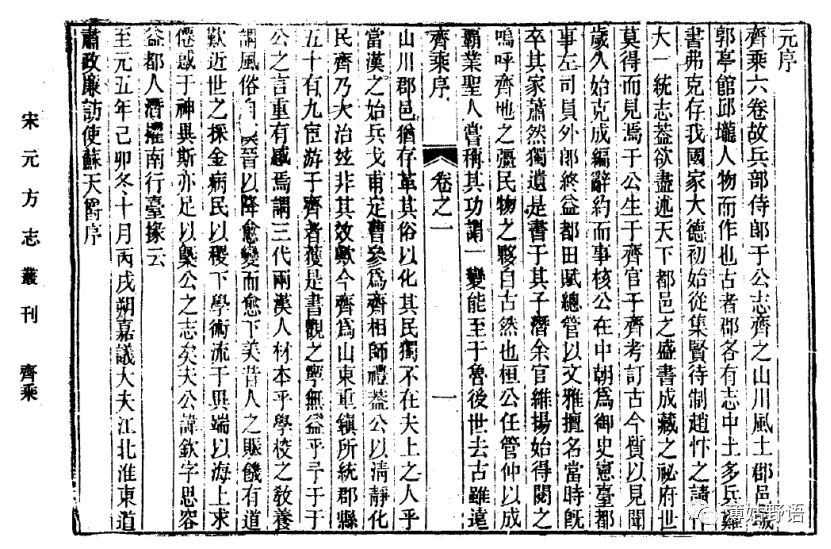 元序
齊乘六卷故兵部侍郎于公志齊之山川風土郡邑城
郭亭館邱壠人物而作也古者郡各有志中土多兵難
書弗克存我國家大德初始從集賢待制趙忭之請作
大一統志葢欲盡述天下都邑之盛書成藏之祕府世
莫得而見焉于公生于齊官于齊考訂古今質以見聞
歲久始克成編辭約而事核公在中朝爲御史憲臺都
事左司員外郎終益都田賦總管以文雅擅名當時旣
卒其家蕭然獨遺是書于其子潛余官維揚始得閱之
嗚呼齊地之彊民物之夥自古然也桓公任管仲以成
霸業聖人嘗稱其功謂一變能至于魯後世去古雖遠
齊乘序 卷之一 一
山川郡邑猶存革其俗以化其民獨不在夫上之人乎
當漢之始兵戈甫定曹參爲齊相師禮葢公以淸靜化
民齊乃大治玆非其效歟今齊爲山東重鎮所統郡縣
五十有九宦游于齊者獲是書觀之寧無益乎予于于
公之言重有感焉謂三代兩漢人材本乎學校之敎養
謂風俗自晉以降愈變而愈下美昔人之賑饑有道
歎近世之採金病民以稷下學術流于異端以海上求
僊惑于神異斯亦足以槩公之志矣夫公諱欽字思容
益都人潛擢南行臺掾云
至元五年己卯冬十月丙戌朔嘉議大夫江北淮東道
肅政廉訪使蘇天爵序
宋元方志叢刊 齊乘
薄姑野语